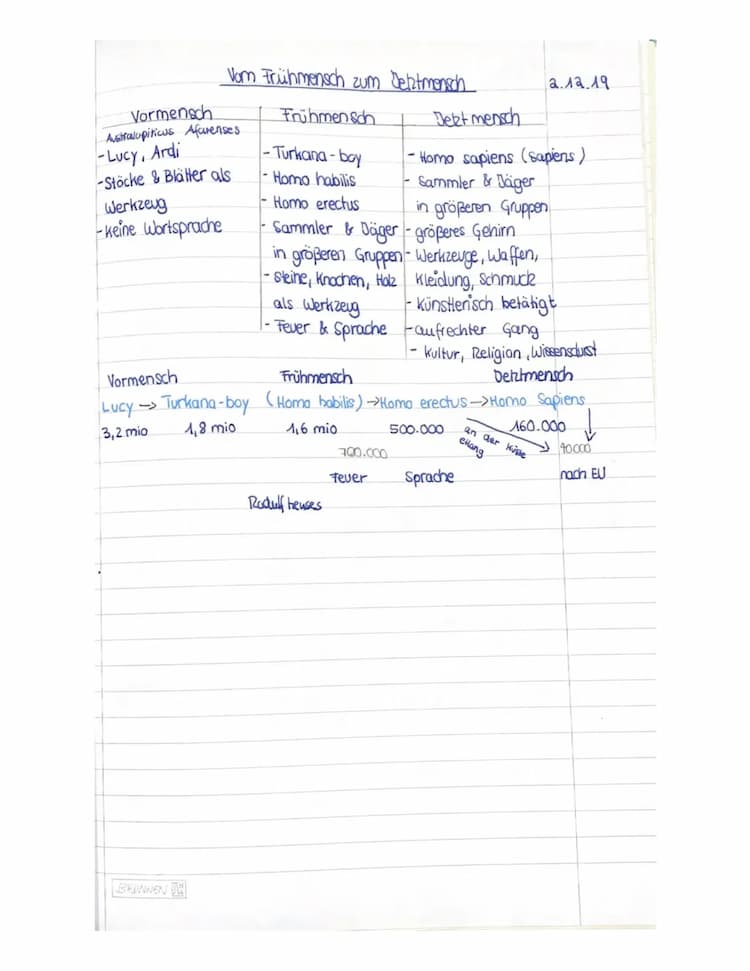 Vom Frühmensch zum Jetztmensch
2.12.19
Vormensch
Australupiticus Afarenses
- Lucy, Ardi
- Stöcke & Blätter als
Werkzeug
- keine Wortsprache
Frühmensch
- Turkana-boy
- Homo habilis
- Homo erectus
- Sammler & Jäger
in größeren Gruppen
- Steine, Knochen, Holz
als Werkzeug
- Feuer & Sprache
Jetztmensch
- Homo sapiens (sapiens)
- Sammler & Jäger
in größeren Gruppen
- größeres Gehirn
- Werkzeuge, Waffen,
Kleidung, Schmuck
- künstlerisch betätigt
- aufrechter Gang
- Kultur, Religion, Wissensdurst
Vormensch Frühmensch Jetztmensch
Lucy → Turkana-boy (Homo habilis) → Homo erectus → Homo Sapiens
3,2 mio 1,8 mio 1,6 mio 500.000 160.000
an der Küste
etlang
700.000 40000
Feuer Sprache nach EU
BRUNNEN